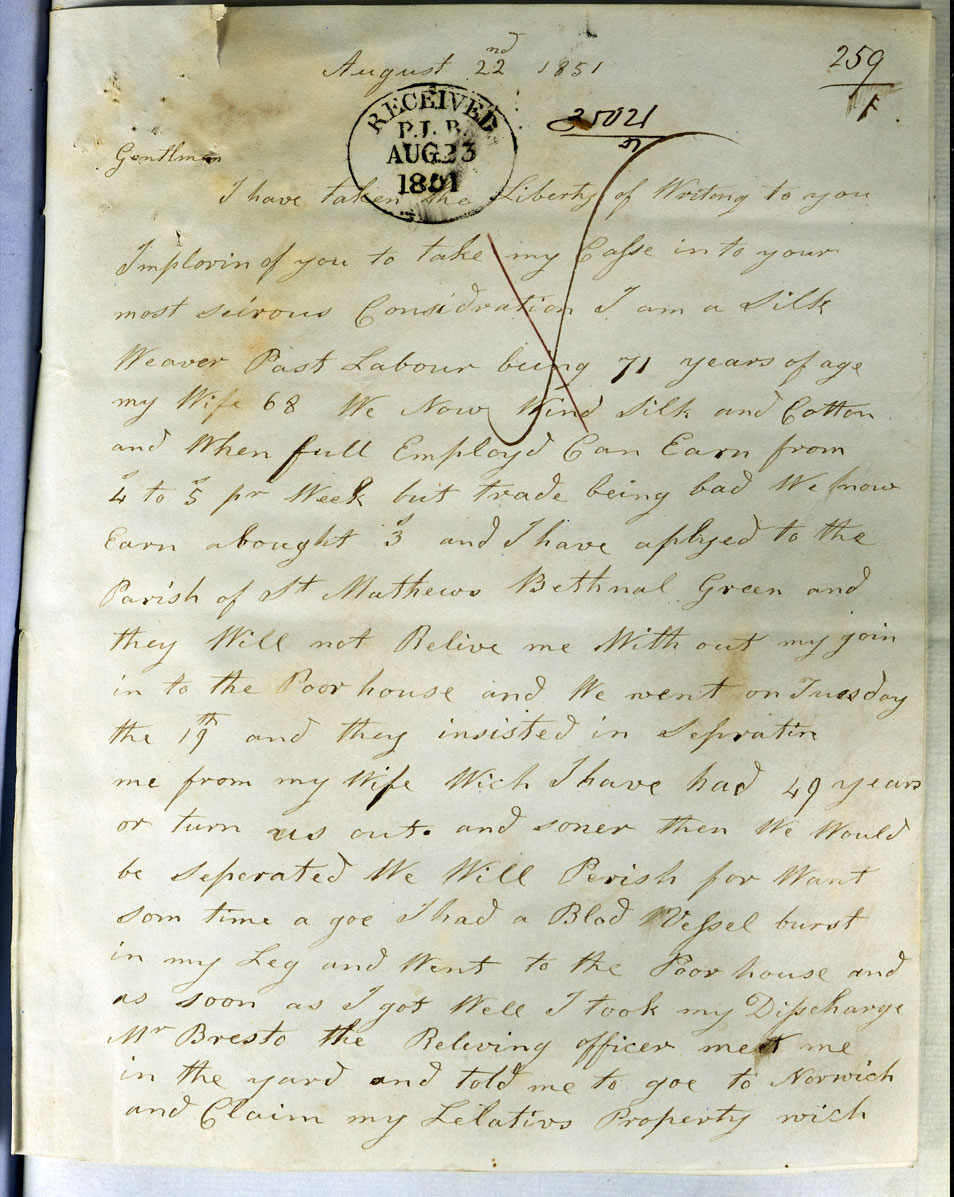 August 22nd 1851
259
RECEIVED
P.L.B.
AUG 23
1851
35021
Gentlman
I have taken the Liberty of Writing to you
Implorin of you to take my Casse in to your
most seirous Considration I am a Silk
Weaver Past Labour being 71 years of age
my Wife 68 We Now Wind Silk and Cotton
and When full Employd Can Earn from
4s to 5s pr Week but trade being bad We know
Earn abought 3s and I have aplyed to the
Parish of St Mathews Bethnal Green and
they Will not Relive me With out my goin
in to the Poor house and We went on Tuesday
the 19th and they insisted in Sepratin
me from my Wife Wich I have had 49 years
or turn us out. and soner then We Would
be seperated We Will Perish for Want
som time a goe I had a Blad Vessel burst
in my Leg and Went to the Poor house and
as soon as I got Well I took my Disscharge
Mr Bresto the Reliving officer meet me
in the yard and told me to goe to Norwich
and Claim my Lelativs Property wich